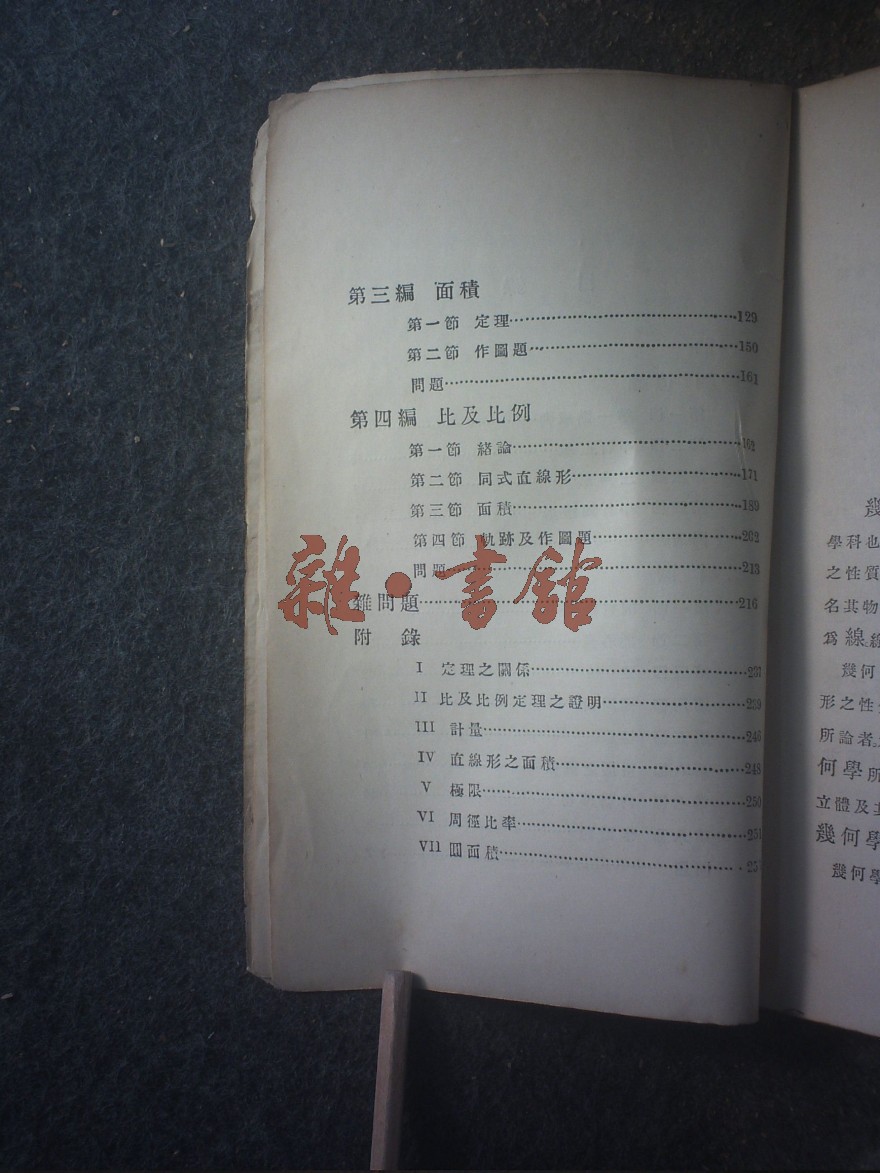 第三編 面積
第一節 定理……129
第二節 作圖題……150
問題……161
第四編 比及比例
第一節 緒論……162
第二節 同式直線形……171
第三節 面積……189
第四節 軌跡及作圖題……202
問題……213
雜問題……216
附 錄
I 定理之關係……237
II 比及比例定理之證明……239
III 計量……246
IV 直線形之面積……248
V 極限……250
VI 周徑比率……251
VII 圓面積……
雜·書館
學科也
之性質
名其物
爲線
幾何
形之性
所論者
何學所
立體及其
幾何學
幾何學